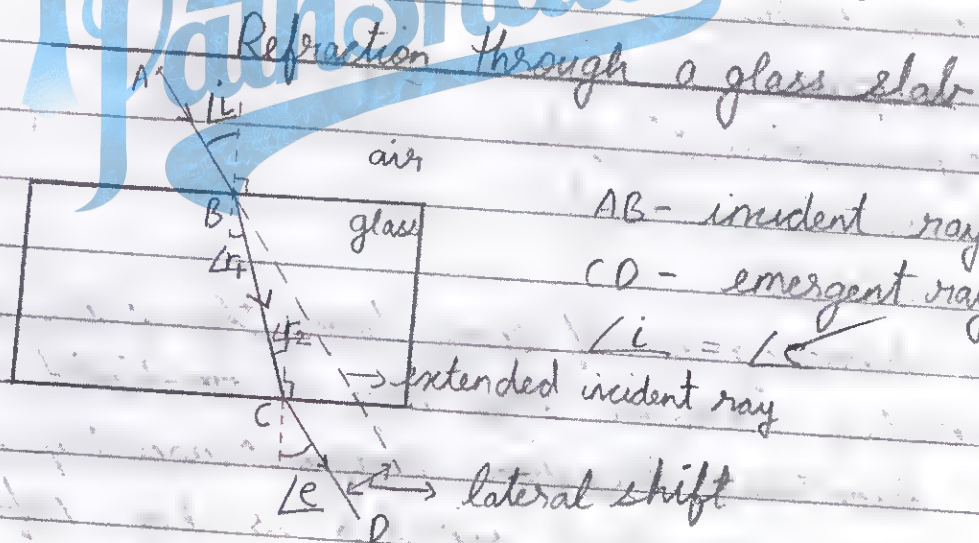 Refraction through a glass slab
A
∠i
air
B
glass
AB - incident ray
∠r1
CD - emergent ray
∠r2
∠i = ∠e
extended incident ray
C
∠e
lateral shift
D